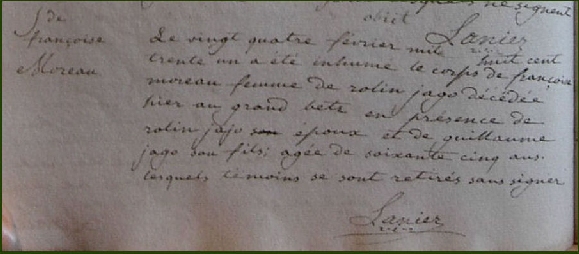 ne signent
obiit
Lanier
S de
françoise
Moreau
Le vingt quatre février mil huit cent
trente un a été inhumé le corps de françoise
moreau femme de rolin jago décédée
hier au grand betz en présence de
rolin jajo son époux et de guillaume
jago son fils; agée de soixante cinq ans.
lesquels témoins se sont retirés sans signer
Lanier